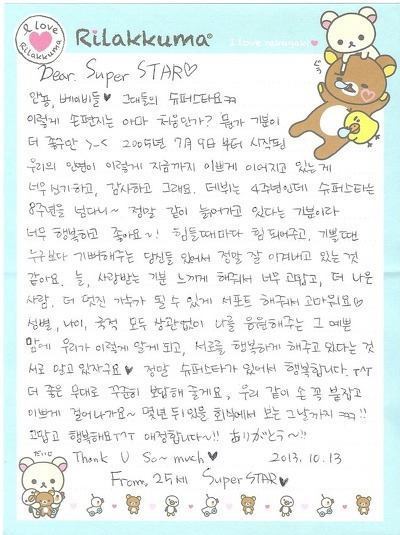 I love
Rilakkuma
Rilakkuma®
I love
Dear. Super STAR♡
안뇽, 베이비들♥ 그대들의 슈퍼스타요ㅋㅋ
이렇게 손편지는 아마 처음인가? 뭔가 기분이
더 좋구만 >-< 2005년 7월 9일부터 시작된
우리의 인연이 이렇게 지금까지 이쁘게 이어지고 있는게
너무 신기하고, 감사하고 그래요. 데뷔는 4주년인데 슈퍼스타는
8주년을 넘다니~ 정말 같이 늙어가고 있다는 기분이라
너무 행복하고 좋아요~! 힘들때마다 힘 되어주고, 기쁠때면
누구보다 기뻐해주는 당신들 있어서 정말 잘 이겨내고 있는 것
같아요. 늘, 사랑받는 기분 느끼게 해줘서 너무 고맙고, 더 나은
사람, 더 멋진 가수가 될 수 있게 서포트 해줘서 고마워요♡
성별, 나이, 국적 모두 상관없이 나를 응원해주는 그 예쁜
맘에 우리가 이렇게 알게 되고, 서로를 행복하게 해주고 있다는 것
서로 알고 있자구요♡ 정말 슈퍼스타가 있어서 행복합니다. TㅅT
더 좋은 무대로 꾸준히 보답해 줄게요, 우리 같이 손 꼭 붙잡고
이쁘게 걸어나가요~ 몇년 뒤 있을 회식에서 보는 그날까지 ㅋㅋ!!
고맙고 행복해요TㅅT 애정합니다~!! ありがとう~!!
Thank U So~ much♥ 2013.10.13
From. 25세 Super STAR♥